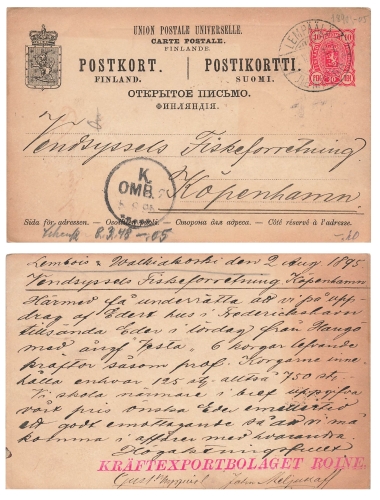 UNION POSTALE UNIVERSELLE.
CARTE POSTALE.
FINLANDE.
POSTKORT. POSTIKORTTI.
FINLAND. SUOMI.
ОТКРЫТОЕ ПИСЬМО.
ФИНЛЯНДІЯ.
10 10
10 10
Vendsyssels Fiskeforretning
K.
OMB. 7
Köpenhamn.
Sida för adressen. — Osoitepuoli. — Сторона для адреса. — Côté réservé à l'adresse.
8.3.48 -.05
Lembois & Walkiakoski den 2 Aug 1895
Vendsyssels Fiskeforretning Köpenhamn
Härmed få underrätta att vi på upp-
drag af Edert hus i Frederickshavn
tillsända Eder i lördag från Hangö
med ångf. Vesta. 6 korgar lefvande
kräftor såsom prof. Korgarne inne-
hålla enhvar 125 st, alltså 750 st.
Vi skola närmare i bref uppgifva
vårt pris önska Eder emellertid
ett godt emottagande så att vi må
komma i affärer med hvarandra.
Högaktningsfullt
KRÄFTEXPORTBOLAGET ROINE.